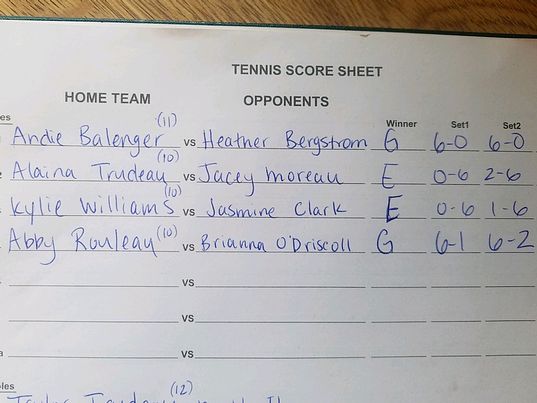 TENNIS SCORE SHEET
HOME TEAM OPPONENTS
es Winner Set1 Set2
Andie Balenger (11) vs Heather Bergstrom G 6-0 6-0
Alaina Trudeau (10) vs Jacey Moreau E 0-6 2-6
Kylie Williams (10) vs Jasmine Clark E 0-6 1-6
Abby Rouleau (10) vs Brianna O'Driscoll G 6-1 6-2
vs
vs
vs
les
(12)